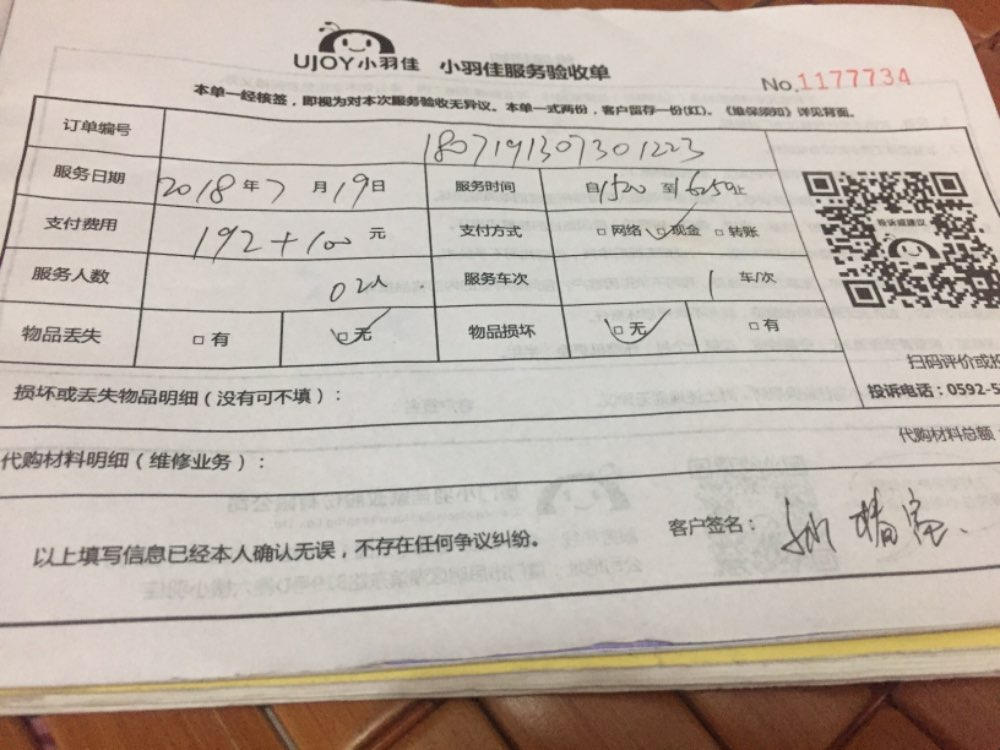 UJOY小羽佳 小羽佳服务验收单
No.1177734
本单一经核签，即视为对本次服务验收无异议。本单一式两份，客户留存一份(红)。《维保须知》详见背面。
订单编号 1807191307301223
服务日期 2018年7月19日 服务时间 自1520至1650止
支付费用 192+100元 支付方式 □网络 □现金 □转账
投诉或建议
服务人数 02人 服务车次 1车/次
物品丢失 □有 □无 物品损坏 □无 □有
扫码评价或投
损坏或丢失物品明细(没有可不填)：
投诉电话：0592-5
代购材料总额：
代购材料明细(维修业务)：
客户签名：
以上填写信息已经本人确认无误，不存在任何争议纠纷。